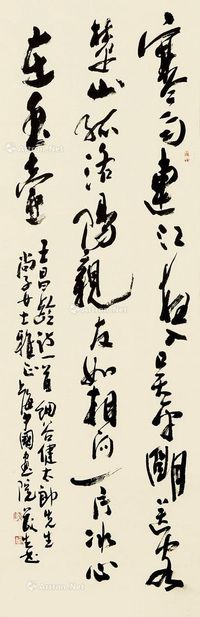 寒雨連江夜入吳平明送客
楚山孤洛陽親友如相問一片冰心
在玉壺
王昌齡詩一首 細谷健太郎先生
尚子女士雅正 上海中國畫院
Artron.Net